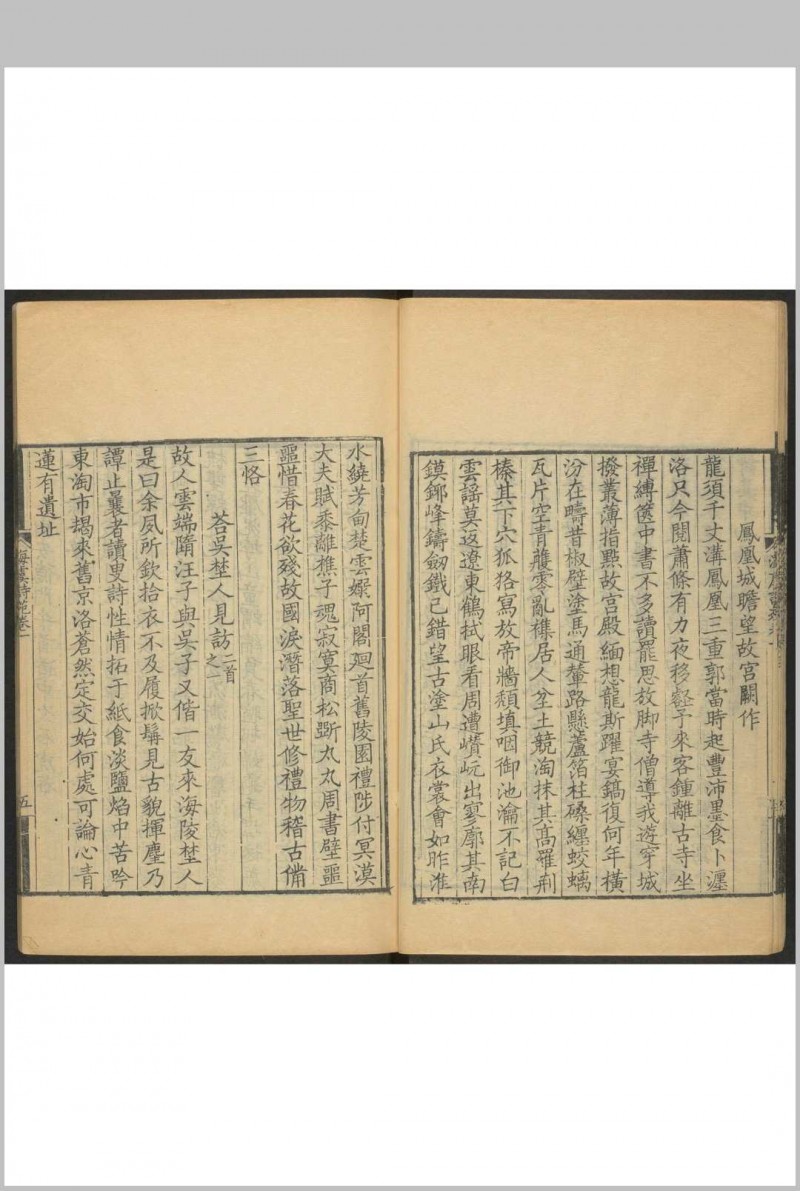 鳳凰城瞻望故宮闕作
龍須千丈溝鳳凰三重郭當時起豐沛墨食卜瀍
洛只今閱蕭條有力夜移壑予來客鍾離古寺坐
禪縛篋中書不多讀罷思放脚寺僧導我遊穿城
撥叢薄指點故宮殿緬想龍斯躍宴鎬復何年橫
汾在疇昔椒壁塗馬通輦路懸蘆箔柱礎纏蛟螭
瓦片空青雘零亂樵居人坌土競淘抹其高羅荆
榛其下穴狐狢寫放帝牆頹填咽御池瀹不記白
雲謠莫返遼東鶴拭眼看周遭巑岏出寥廓其南
鏌鋣峰鑄劒鐵已錯望古塗山氏衣裳會如昨淮
水繞芳甸楚雲嫘阿閣廻首舊陵園禮陟付冥漠
大夫賦黍離樵子魂寂寞商松斲丸丸周書壁噩
噩惜春花欲殘故國淚潛落聖世修禮物稽古備
三恪
荅吳埜人見訪二首之一
故人雲端隋汪子與吳子又偕一友來海陵埜人
是曰余夙所欽拾衣不及履掀髯見古貌揮麈乃
譚止曩者讀叟詩性情拓于紙食淡鹽焰中苦吟
東淘市朅來舊京洛蒼然定交始何處可論心青
蓮有遺址
五